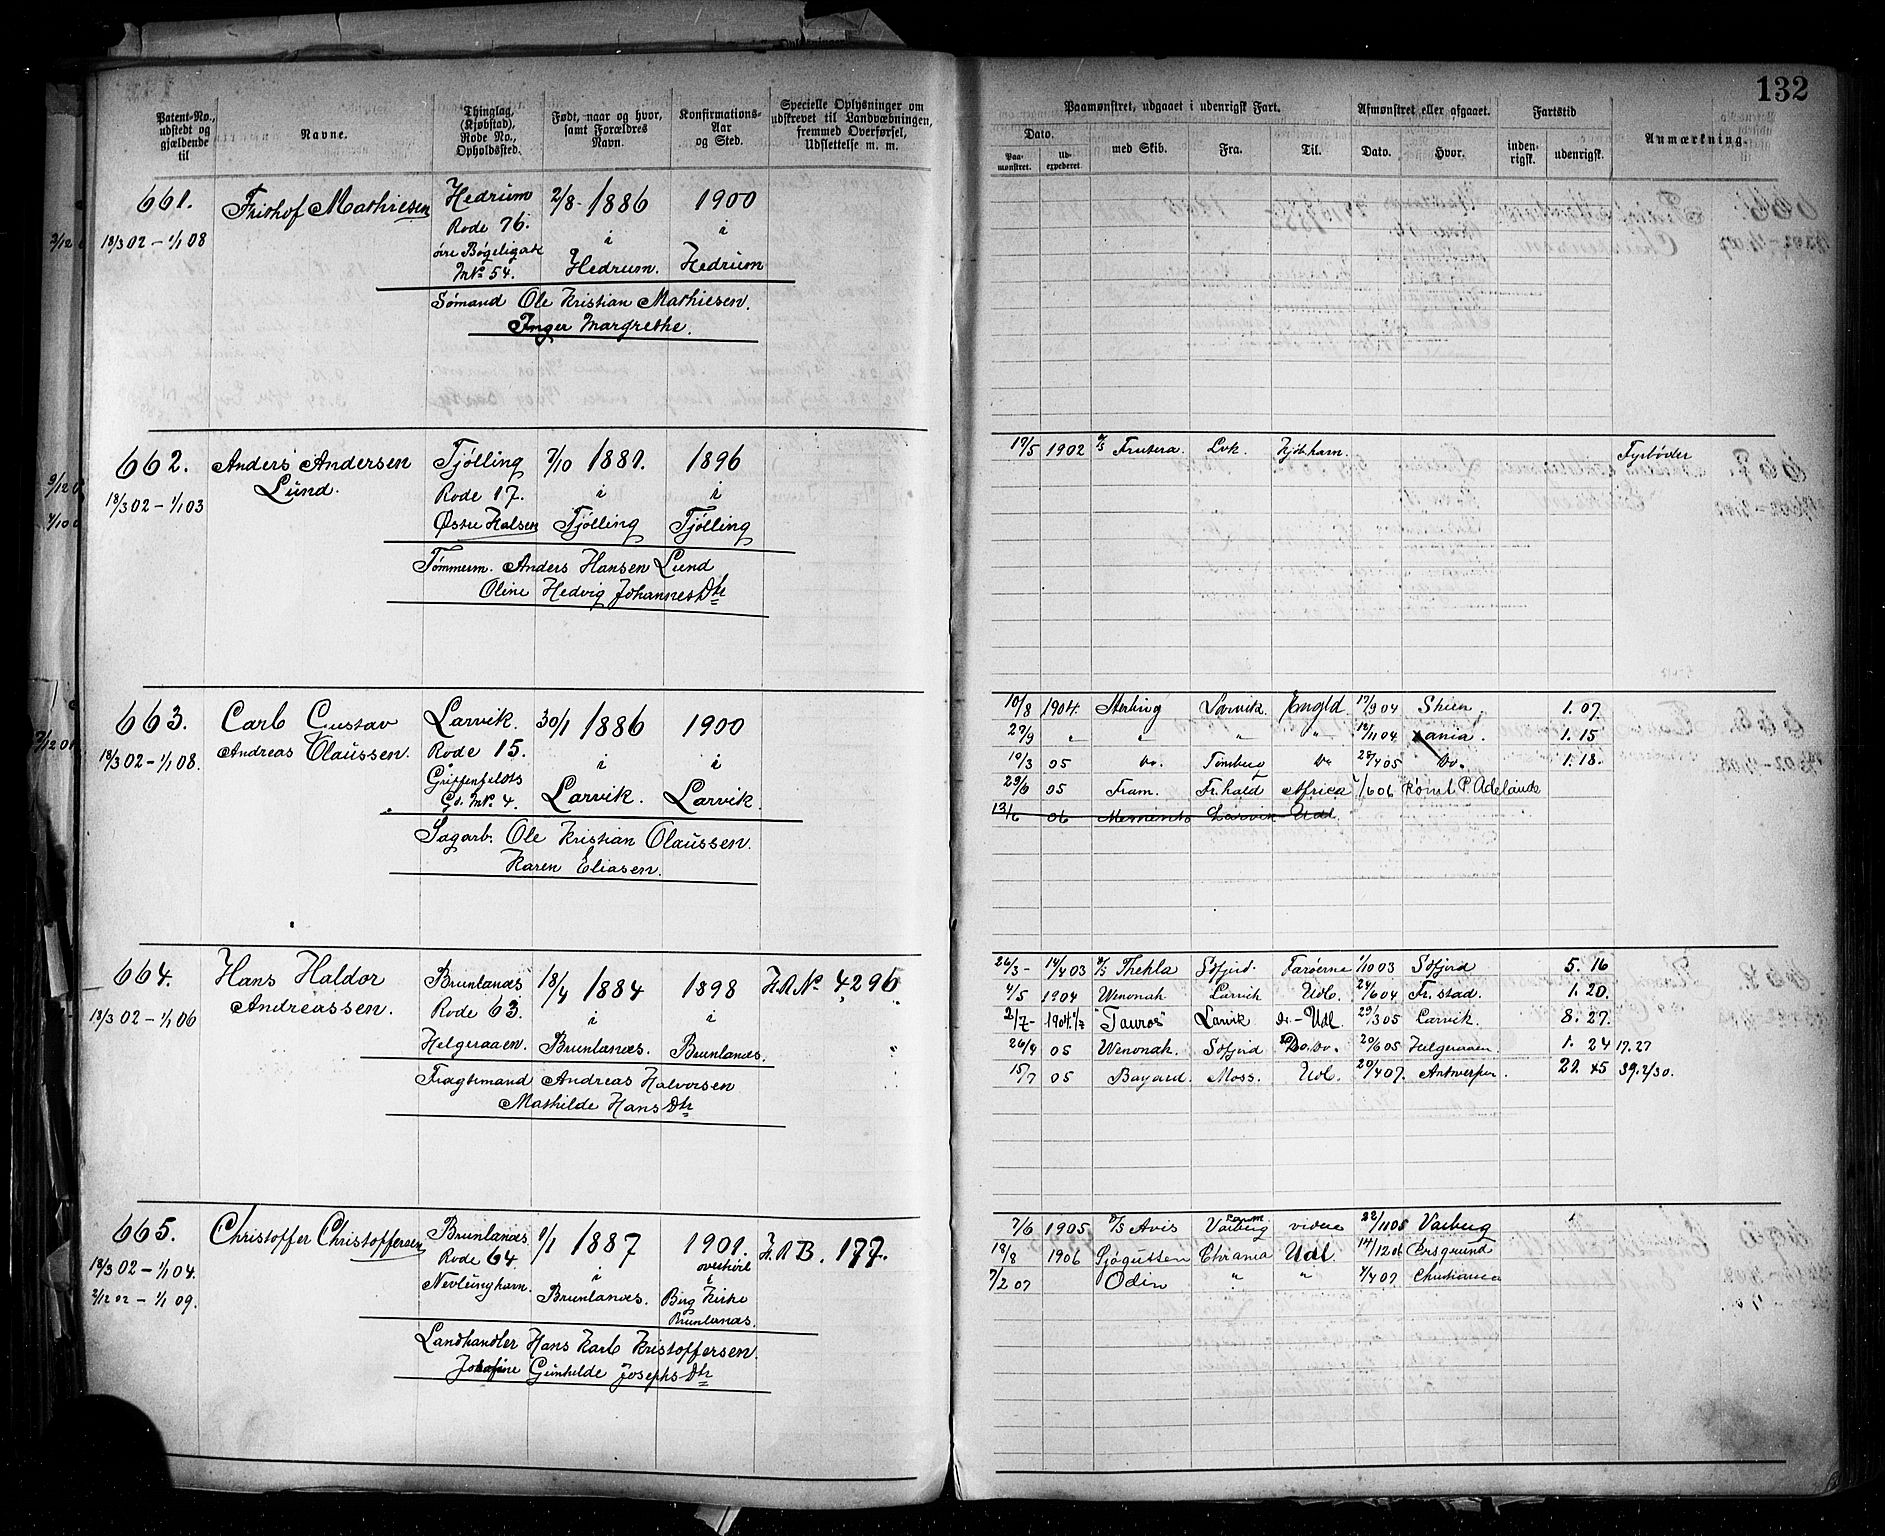 132
Patent-No., udstedt og gjældende til
Navne.
Thinglag, (Kjøbstad), Rode No., Opholdssted.
Født, naar og hvor, samt Forældres Navn.
Konfirmations-Aar og Sted.
Specielle Oplysninger om udskrevet til Landvæbningen, fremmed Overførsel, Udslettelse m. m.
Paamønstret, udgaaet i udenrigsk Fart.
Afmønstret eller afgaaet.
Fartstid
Anmærkning.
Dato.
Paa-mønstret.
Ud-expederet
med Skib.
Fra.
Til.
Dato.
Hvor.
inden-rigsk.
udenrigsk.
661. Frithof Mathiesen Hedrum 2/8 1886 1900
18/3 02 – 1/1 08 Rode 76. i i
øvre Bøgeligade Hedrum. Hedrum
M№ 54.
Sømand Ole Kristian Mathiesen.
Inger Margrethe.
662. Anders Andersen Tjølling 7/10 1881. 1896
Lund. Rode 17. i i
18/3 02 – 1/1 03 Østre Halsen Tjølling Tjølling
Tømmerm. Anders Hansen Lund
Oline Hedvig Johannes Dtr
17/5 1902 D/S Frutera Lvk. Kjøbhavn. Fyrbøder
663. Carl Gustav Larvik. 30/1 1886 1900
Andreas Olaussen. Rode 15. i i
18/3 02 – 1/1 08. Griffenfeldts Larvik. Larvik.
Gd. M№ 4.
Sagarb. Ole Kristian Olaussen.
Karen Eliasen.
10/8 1904. Sterling Larvik. Engld 17/9 04 Skien. 1. 07.
29/9 " " " " 12/11 04 1. 15
10/3 05 Do. Tønsberg Do 28/4 05 Do. 1. 18.
29/6 05 Fram. Fr.hald Africa 1/6 06 Rømt P. Adelaide
13/6 06 Memento Larvik – Udl.
664. Hans Haldor Brunlanæs 18/4 1884 1898 H.R № 4296
Andreassen. Rode 63. i i
18/3 02 – 1/1 06 Helgeraaen. Brunlanæs. Brunlanæs.
Fragtemand Andreas Halvorsen
Mathilde Hans Dtr
26/3 – 14/4 03 D/S Thekla Sdfjord. Farøerne 1/10 03 Sdfjord 5. 16
4/5 1904 Wenonah Larvik Udl. 24/6 04 Fr.stad. 1. 20.
2/7 – 1904. "Tauros" Larvik – Udl 29/3 05 Larvik. 8. 27.
26/4 05 Wenonah. Sdfjord Do. 20/6 05 Helgeraaen. 1. 24 17.27
15/7 05 Bayard. Moss. Udl. 20/4 07. Antwerpen. 21. 45 39.2/30.
665. Christoffer Christoffersen Brunlanæs 1/1 1887 1901. H.R B. 177.
18/3 02 – 1/1 04. Rode 64. i overhørt i
2/12 02 – 1/1 09. Nevlunghavn. Brunlanæs. Berg Kirke
Brunlanæs.
Landhandler Hans Karl Kristoffersen.
Josefine Gunhilde Josephs Dtr
7/6 1905 D/S Avis Varberg videre 22/11 05 Varberg
18/8 1906 Sjøgutten Chrania Udl. 14/12 06 Porsgrund
7/2 07 Odin " " 4/4 07 Christiania